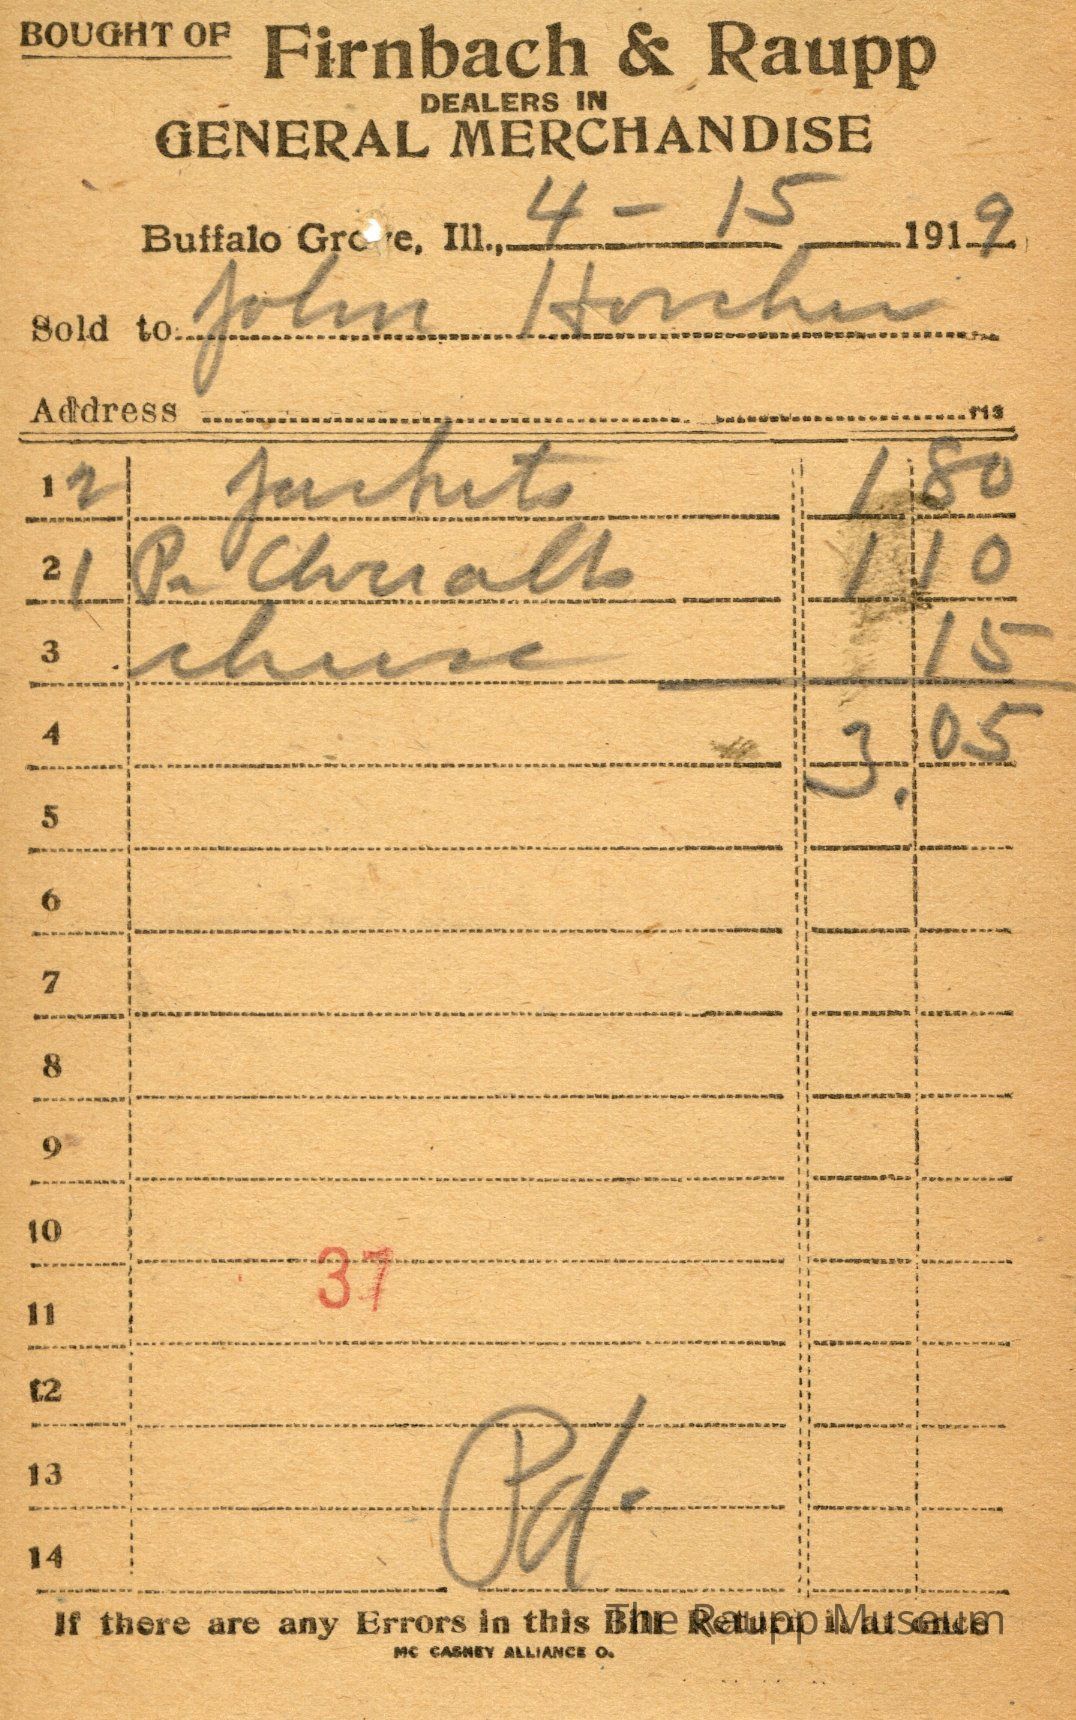 BOUGHT OF Firnbach & Raupp
DEALERS IN
GENERAL MERCHANDISE
Buffalo Grove, Ill., 4 - 15 1919
Sold to John Horcher
Address
1 2 Jackets 1 80
2 1 Pr Overalls 1 10
3 cheese 15
4 3.05
5
6
7
8
9
10
37
11
12
13
Pd.
14
If there are any Errors in this Bill Return it at once
The Raupp Museum
MC CASKEY ALLIANCE O.